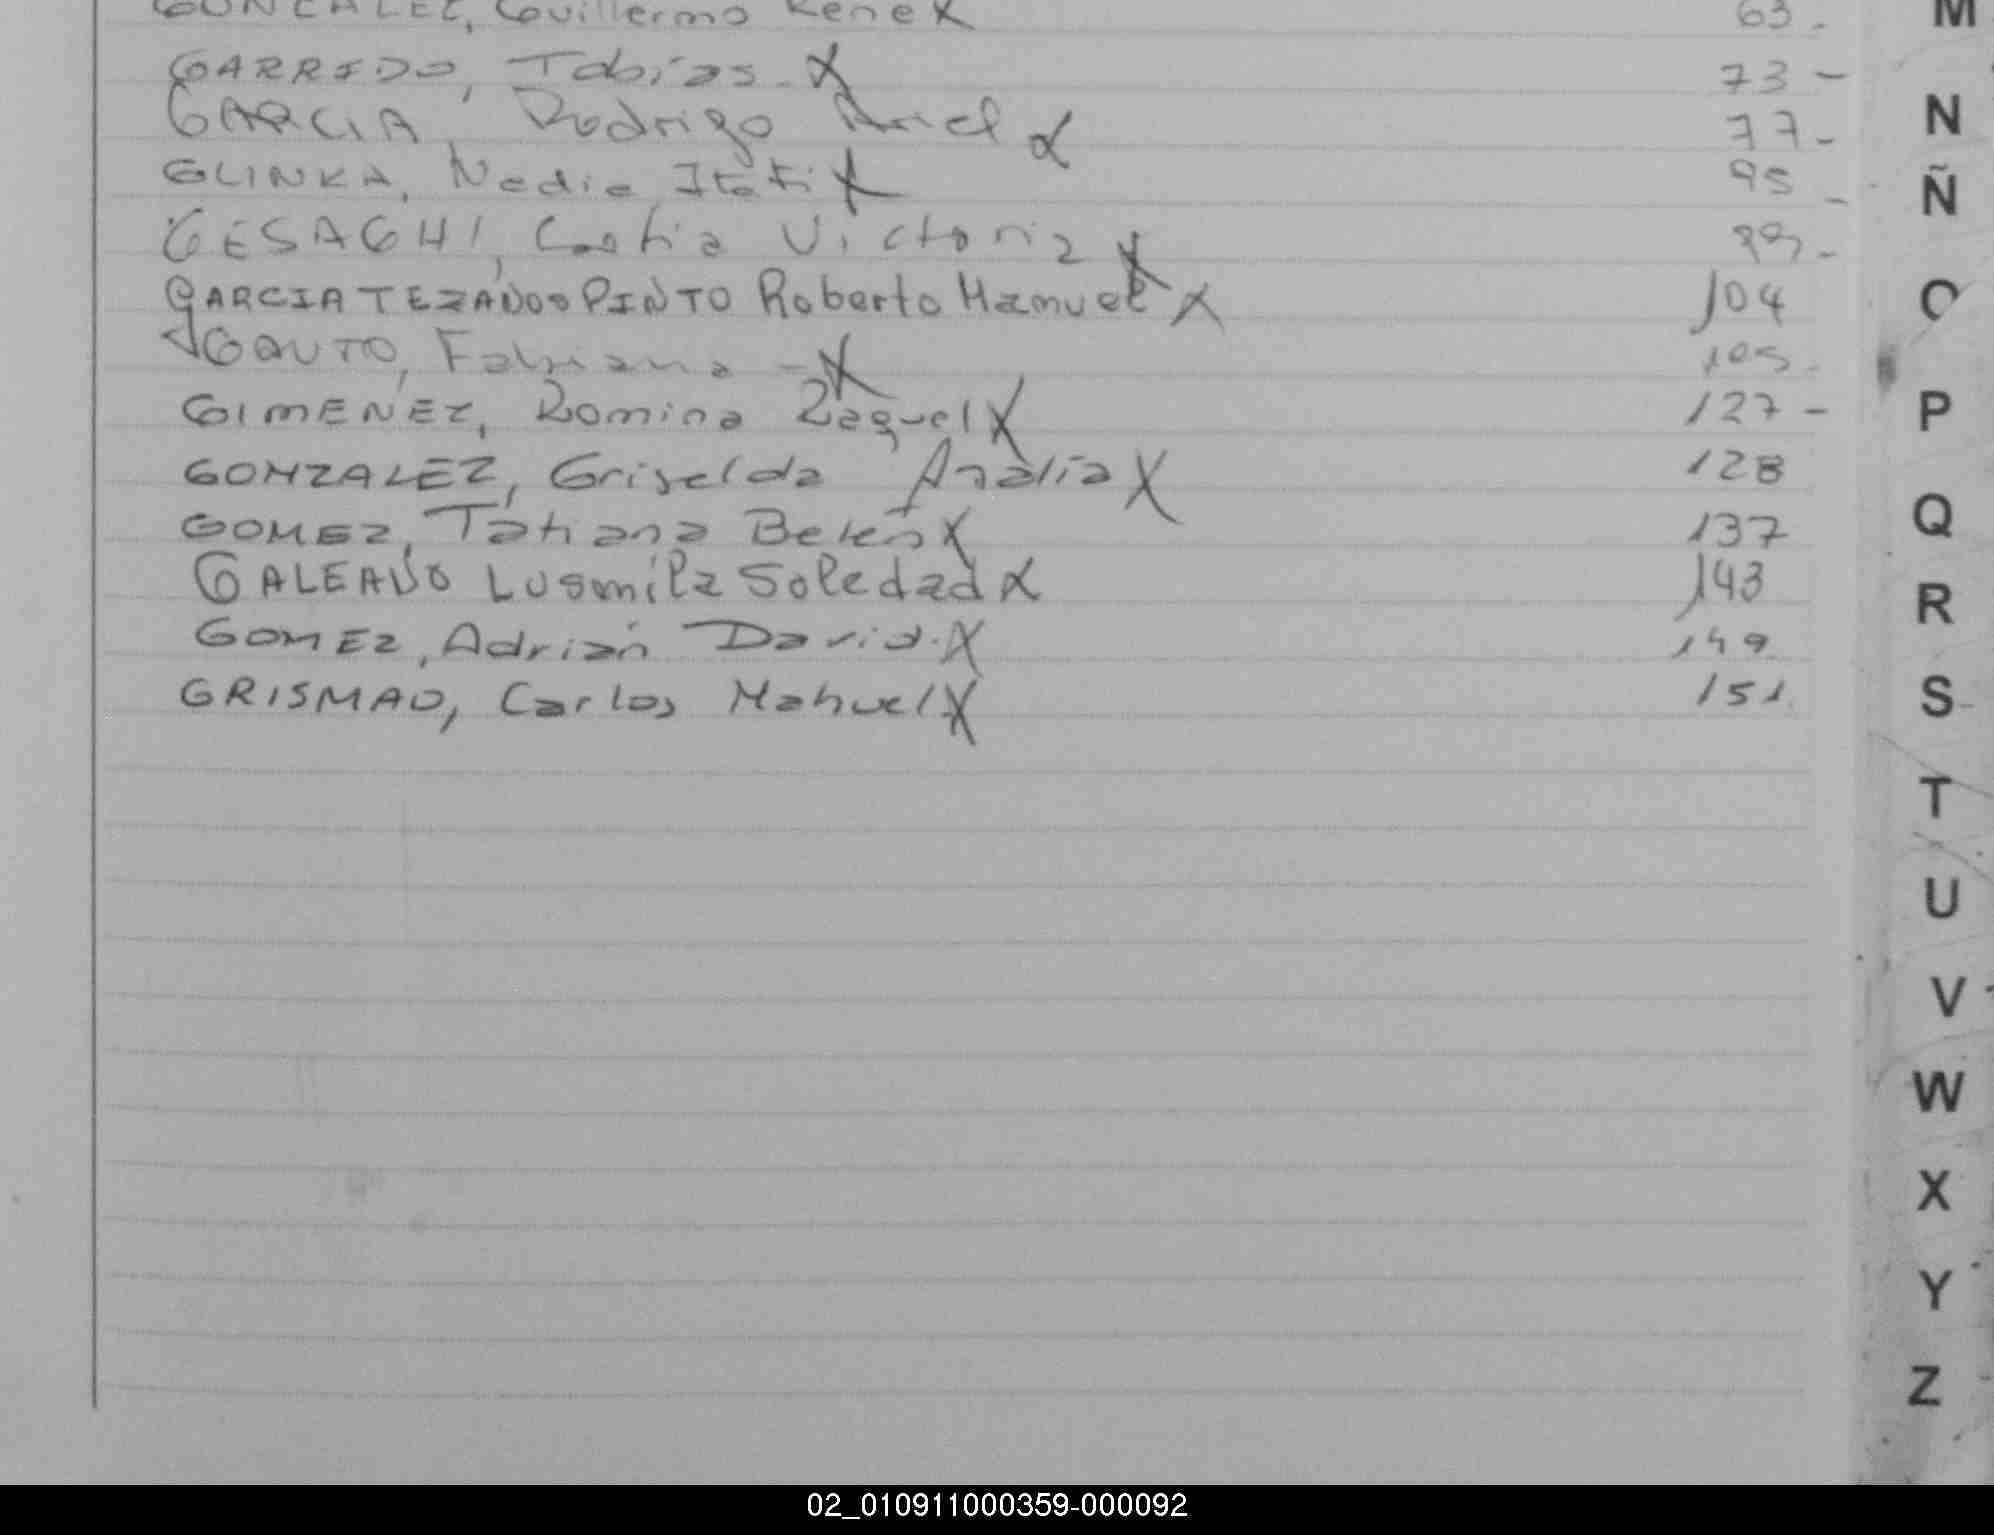 GONZALEZ, Guillermo Rene X 63.
GARRIDO, Tobías. X 73 -
GARCIA, Rodrigo Ariel X 77 -
GLINKA, Nadia Itati X 95 -
GESAGHI, Catia Victoria X 99 -
GARCIA TEZANOS PINTO Roberto Manuel X 104
GAUTO, Fabiana - X 105.
GIMENEZ, Romina Raquel X 127 -
GONZALEZ, Griselda Analía X 128
GOMEZ, Tatiana Belén X 137
GALEANO Lusmila Soledad X 143
GOMEZ, Adrián David. X 149
GRISMAO, Carlos Mahuel X 151.
M
N
Ñ
O
P
Q
R
S
T
U
V
W
X
Y
Z
02_010911000359-000092